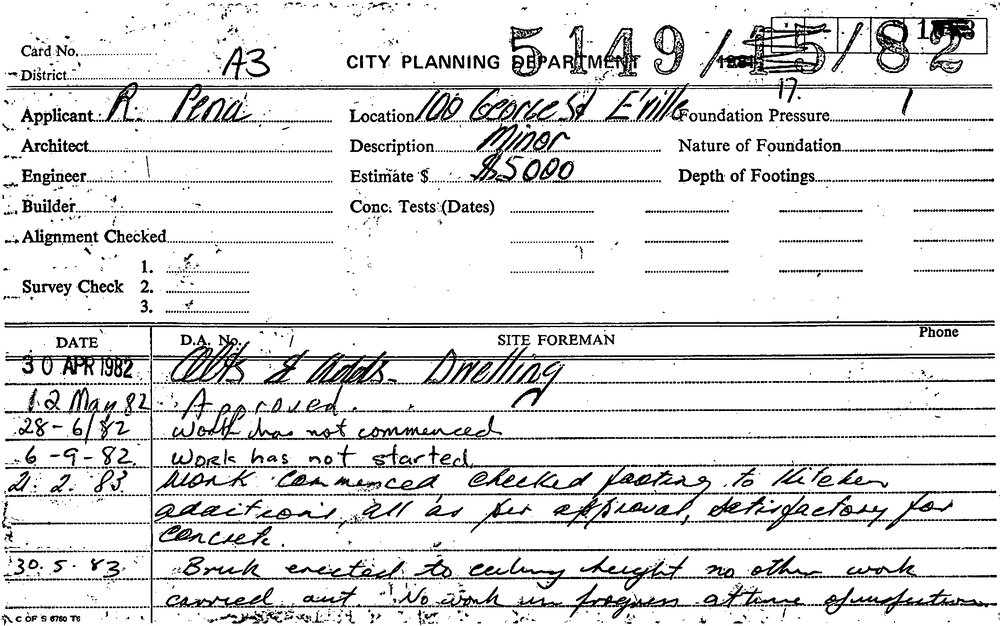 Card No.
District A3
CITY PLANNING DEPARTMENT
5149 / 15 / 82
17.
Applicant R. Pena
Location 100 George St E'ville
Foundation Pressure
Architect
Description Minor
Nature of Foundation
Engineer
Estimate $ $5000
Depth of Footings
Builder
Conc. Tests (Dates)
Alignment Checked
1.
Survey Check 2.
3.
DATE D.A. No. SITE FOREMAN Phone
30 APR 1982 Alts & Adds - Dwelling
12 May 82 Approved.
28-6/82 Work has not commenced
6-9-82 Work has not started
21. 2. 83 Work commenced checked footing to kitchen
additions, all as per approval, satisfactory for
concrete.
30. 5. 83 Brick erected to ceiling height no other work
carried out No work in progress at time of inspection
C OF S 6760 T6